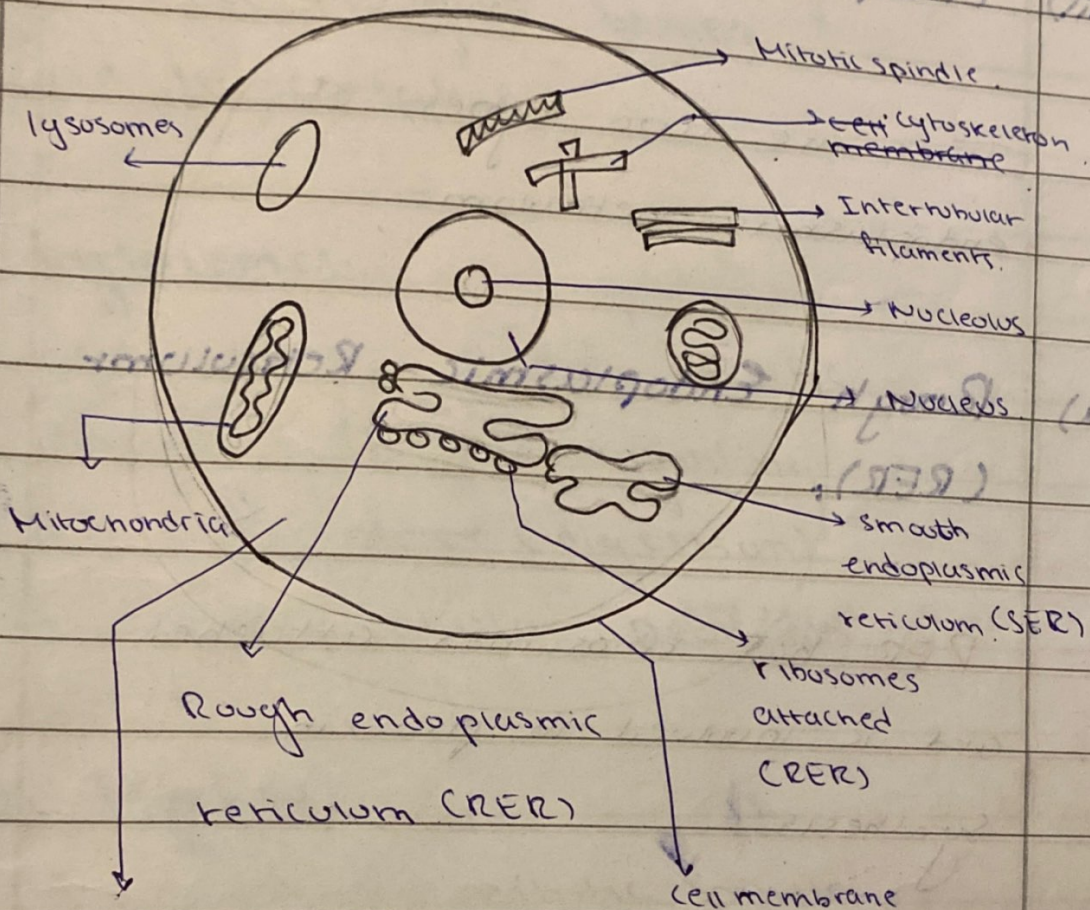 Mitotic spindle.
lysosomes
cell cytoskeleton
membrane
Intertubular
filaments.
Nucleolus
Nucleus.
Mitochondria
smooth
endoplasmic
reticulum (SER)
ribosomes
attached
(RER)
Rough endoplasmic
reticulum (RER)
cell membrane